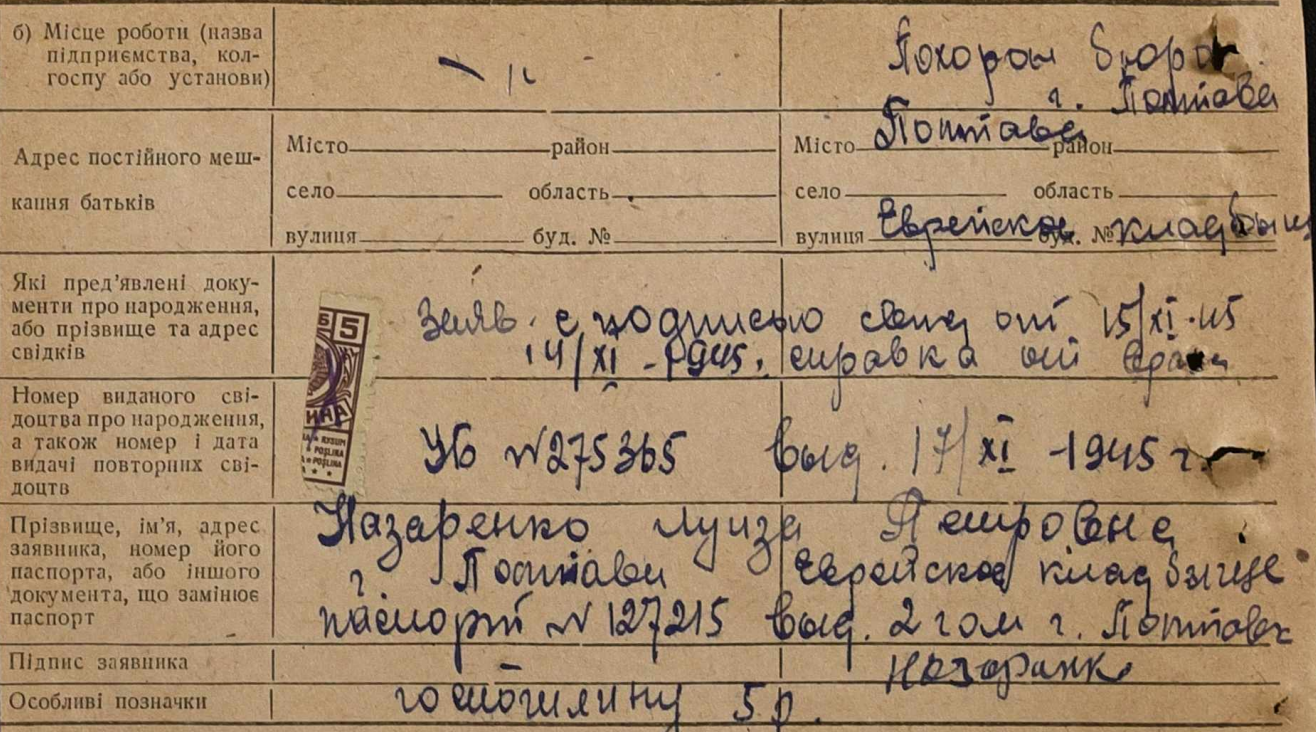 б) Місце роботи (назва
підприємства, кол-
госпу або установи)
Похорон бюро
г. Полтава
Адрес постійного меш-
кання батьків
Місто район
село область
вулиця буд. №
Місто Полтава район
село область
вулиця Еврейское буд. № кладбищ
Які пред’явлені доку-
менти про народження,
або прізвище та адрес
свідків
Б 5
заяв. с подписью свид от 15/XI-45
14/XI-1945. справка от врача
Номер виданого сві-
доцтва про народження,
а також номер і дата
видачі повторних сві-
доцтв
УБ №275365 выд. 17/XI-1945 г.
Прізвище, ім’я, адрес
заявника, номер його
паспорта, або іншого
документа, що замінює
паспорт
Назаренко Луиза Петровна
г Полтава Еврейское кладбыще
паспорт №127215 выд. 2 гом г. Полтавы
Підпис заявника
Назаренк
Особливі позначки
госпошлину 5 р.